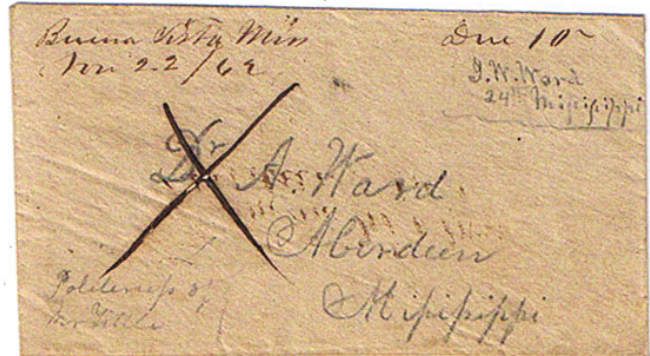 Buena Vista Miss
Nov 22/62
Due 10
J. W. Ward
24th Mississippi
Dr A. Ward
Aberdeen
Mississippi
Politeness of
Mr